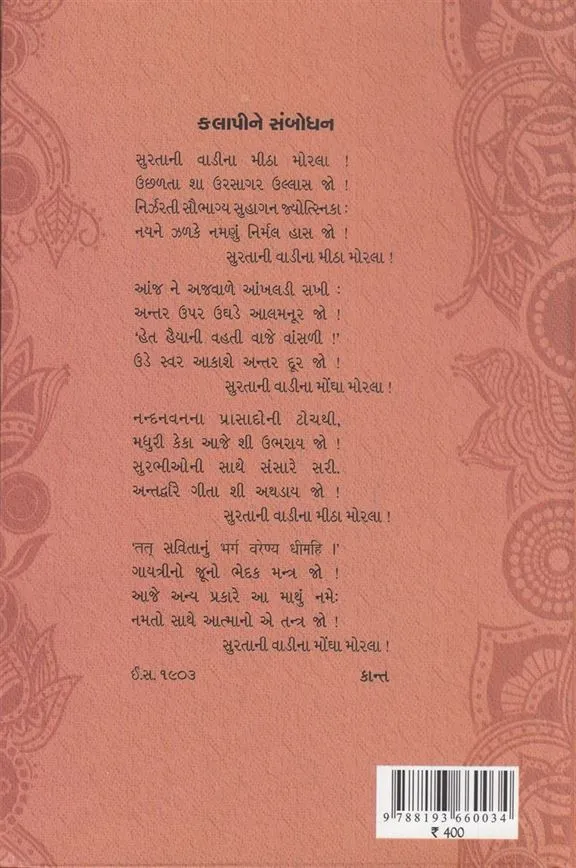 કલાપીને સંબોધન
સુરતાની વાડીના મીઠા મોરલા !
ઉછળતા શા ઉરસાગર ઉલ્લાસ જો !
નિર્ઝરતી સૌભાગ્ય સુહાગન જ્યોત્સ્નિકાઃ
નયને ઝળકે નમણું નિર્મલ હાસ જો !
સુરતાની વાડીના મીઠા મોરલા !
આંજ ને અજવાળે આંખલડી સખી :
અન્તર ઉપર ઉઘડે આલમનૂર જો !
'હેત હૈયાની વહતી વાજે વાંસળી !'
ઉડે સ્વર આકાશે અન્તર દૂર જો !
સુરતાની વાડીના મોંઘા મોરલા !
નન્દનવનના પ્રાસાદોની ટોચથી,
મધુરી કેકા આજે શી ઉભરાય જો !
સુરભીઓની સાથે સંસારે સરી.
અન્તર્દ્વારે ગીતા શી અથડાય જો !
સુરતાની વાડીના મીઠા મોરલા !
'तत् સવિતાનું भर्ग वरेण्य धीमहि ।'
ગાયત્રીનો જૂનો ભેદક મન્ત્ર જો !
આજે અન્ય પ્રકારે આ માથું નમેઃ
નમતો સાથે આત્માનો એ તન્ત્ર જો !
સુરતાની વાડીના મોંઘા મોરલા !
ઈ.સ. ૧૯૦૩ કાન્ત
9 788193 660034
₹ 400